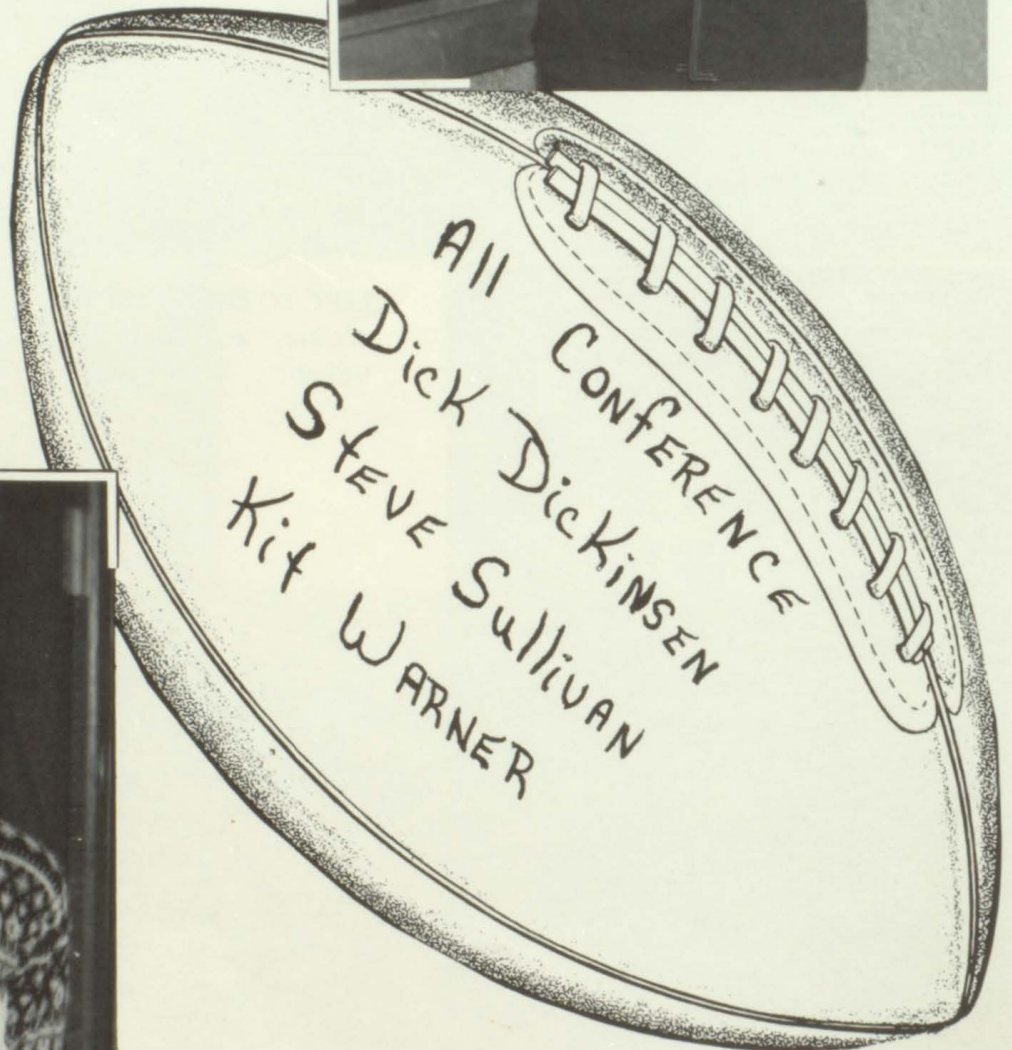 All CONfERENCE
Dick DicKiNSEN
StEVE SullivAN
Kit WARNER